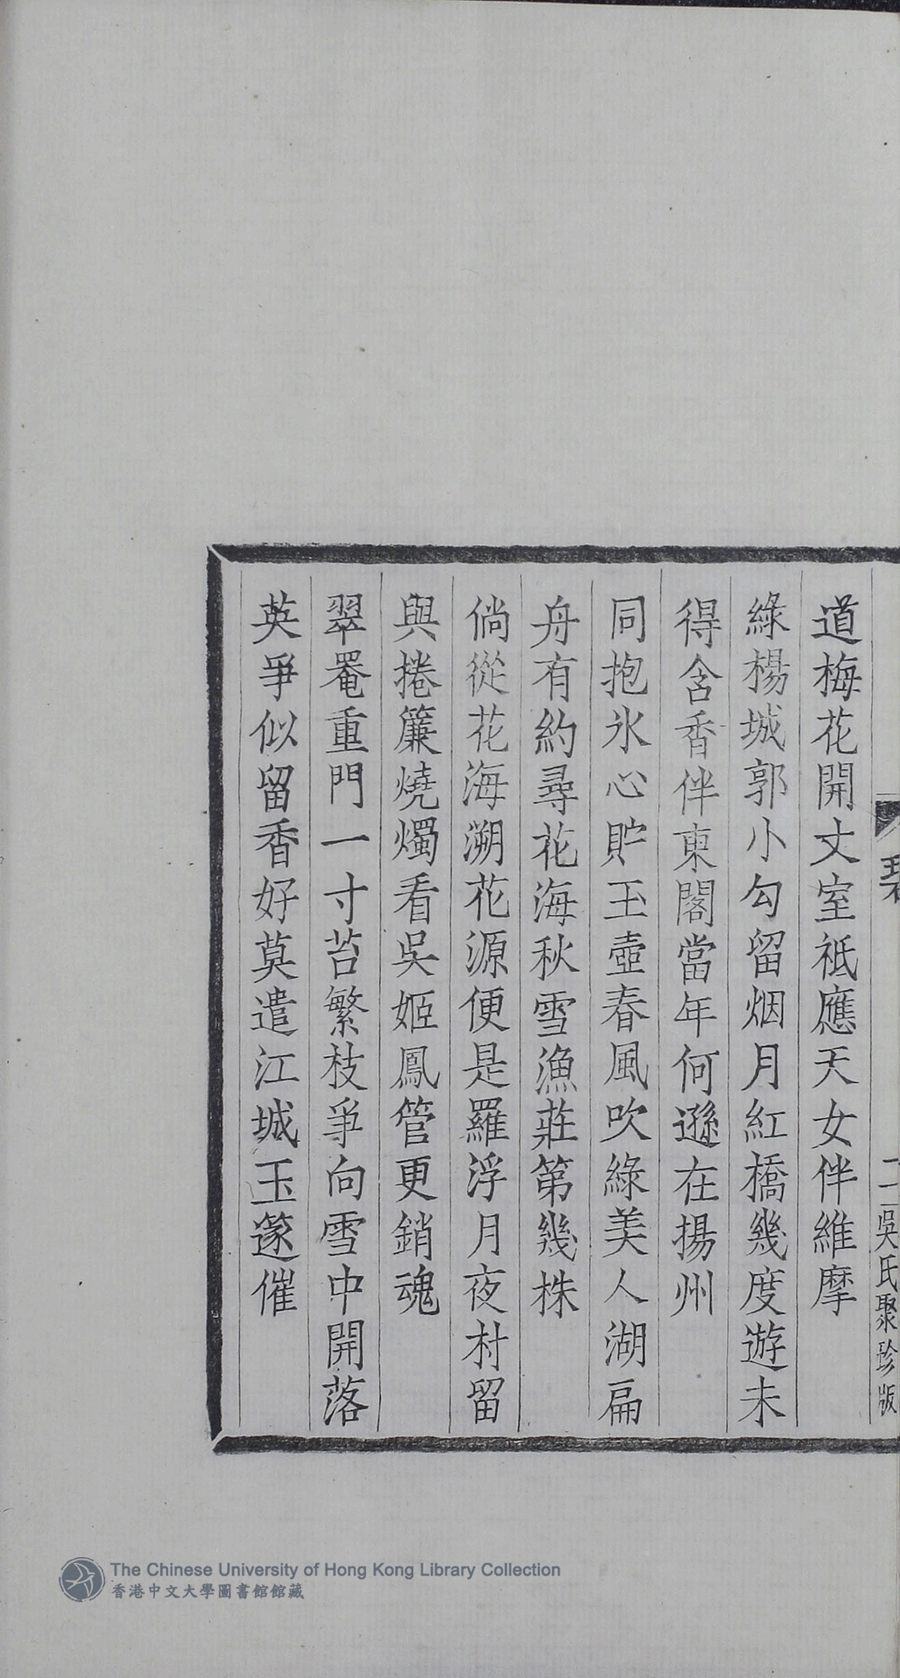 道梅花開丈室祗應天女伴維摩
綠楊城郭小勾留烟月紅橋幾度遊未
得含香伴東閣當年何遜在揚州
同抱氷心貯玉壺春風吹綠美人湖扁
舟有約尋花海秋雪漁莊第幾株
倘從花海溯花源便是羅浮月夜村留
與捲簾燒燭看吳姬鳳管更銷魂
翠罨重門一寸苔繁枝爭向雪中開落
英爭似留香好莫遣江城玉篴催
二 吳氏聚珍版
The Chinese University of Hong Kong Library Collection
香港中文大學圖書館館藏